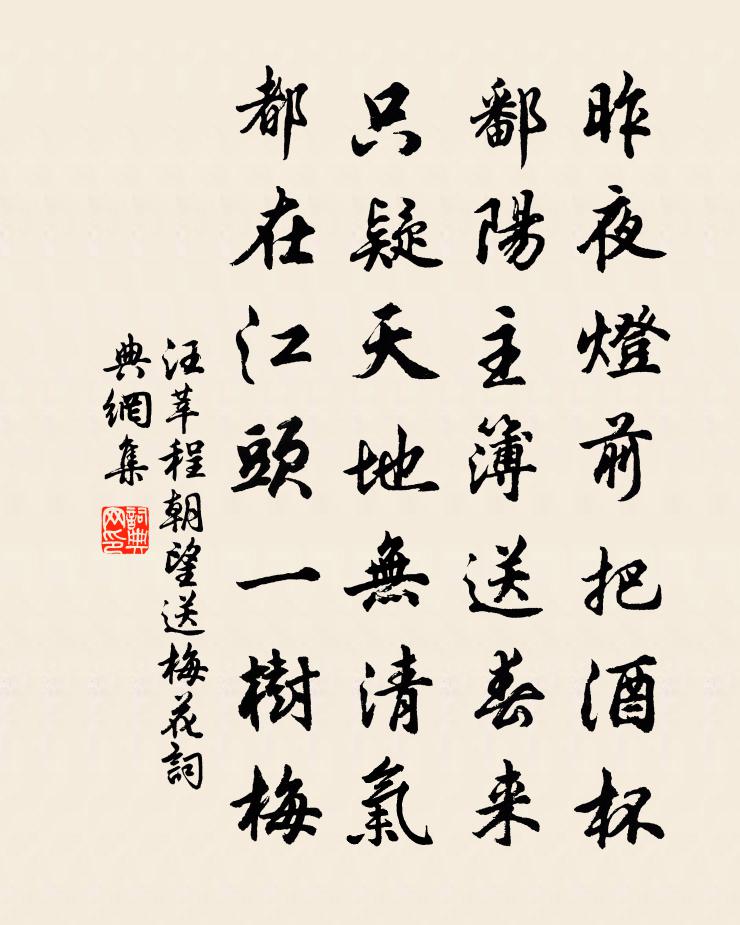 昨夜燈前把酒杯
鄱陽主簿送春来
只疑天地無清氣
都在江頭一樹梅
汪莘程朝望送梅花詞
典網集
詞典网印